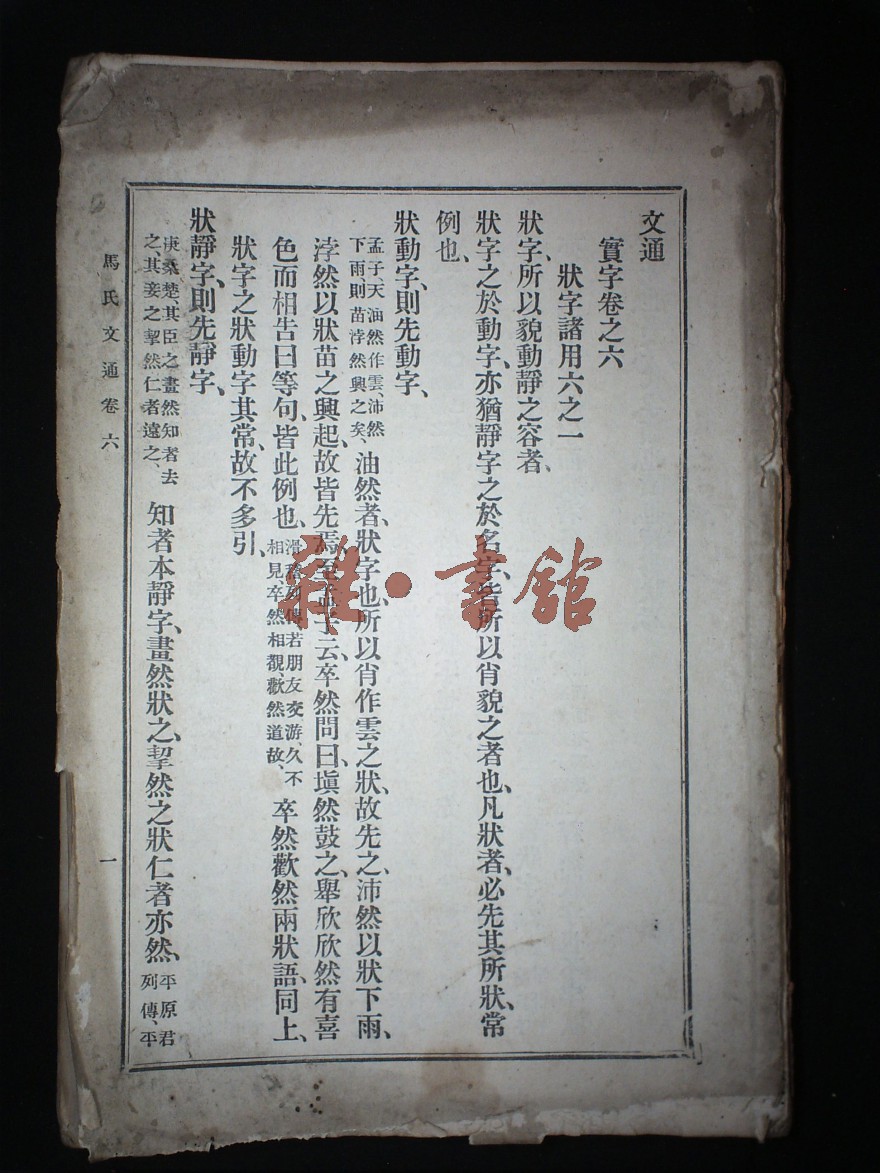 文通
實字卷之六
狀字諸用六之一
狀字、所以貌動靜之容者、
狀字之於動字、亦猶靜字之於名字、皆所以肖貌之者也、凡狀者、必先其所狀、常
例也、
狀動字、則先動字、
孟子、天油然作雲、沛然
下雨則苗浡然興之矣、
油然者、狀字也、所以肖作雲之狀、故先之、沛然以狀下雨、
浡然以狀苗之興起、故皆先焉、至孟子云、卒然問曰、塡然鼓之、舉欣欣然有喜
色而相告曰等句、皆此例也、
滑稽列傳、若朋友交游、久不
相見、卒然相覩、歡然道故、
卒然歡然兩狀語、同上、
狀字之狀動字其常、故不多引、
狀靜字、則先靜字、
庚桑楚、其臣之畫然知者去
之、其妾之挈然仁者遠之、
知者本靜字、畫然狀之、挈然之狀仁者亦然、
平原君
列傳、平
馬氏文通卷六
一
雜·書館